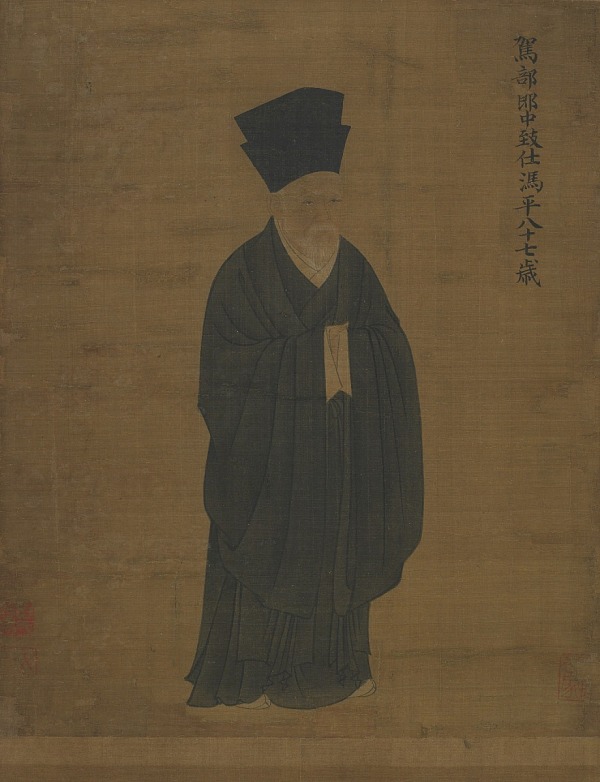 駕部郎中致仕馮平八十七歲